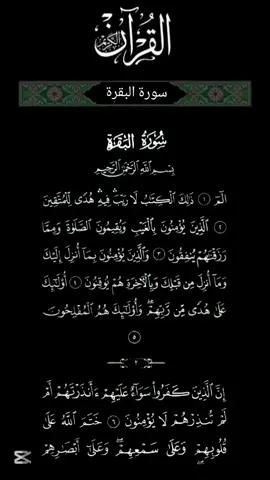 القرآن الكريم
سورة البقرة
سُورَةُ البَقَرَةِ
بِسْمِ اللَّهِ الرَّحْمَٰنِ الرَّحِيمِ
الٓمٓ ١ ذَٰلِكَ الْكِتَابُ لَا رَيْبَ ۛ فِيهِ ۛ هُدًى لِّلْمُتَّقِينَ
٢ الَّذِينَ يُؤْمِنُونَ بِالْغَيْبِ وَيُقِيمُونَ الصَّلَاةَ وَمِمَّا
رَزَقْنَاهُمْ يُنفِقُونَ ٣ وَالَّذِينَ يُؤْمِنُونَ بِمَا أُنزِلَ إِلَيْكَ
وَمَا أُنزِلَ مِن قَبْلِكَ وَبِالْآخِرَةِ هُمْ يُوقِنُونَ ٤ أُولَٰئِكَ
عَلَىٰ هُدًى مِّن رَّبِّهِمْ ۖ وَأُولَٰئِكَ هُمُ الْمُفْلِحُونَ
٥
٢
إِنَّ الَّذِينَ كَفَرُوا سَوَاءٌ عَلَيْهِمْ أَأَنذَرْتَهُمْ أَمْ
لَمْ تُنذِرْهُمْ لَا يُؤْمِنُونَ ٦ خَتَمَ اللَّهُ عَلَىٰ
قُلُوبِهِمْ وَعَلَىٰ سَمْعِهِمْ ۖ وَعَلَىٰ أَبْصَارِهِمْ